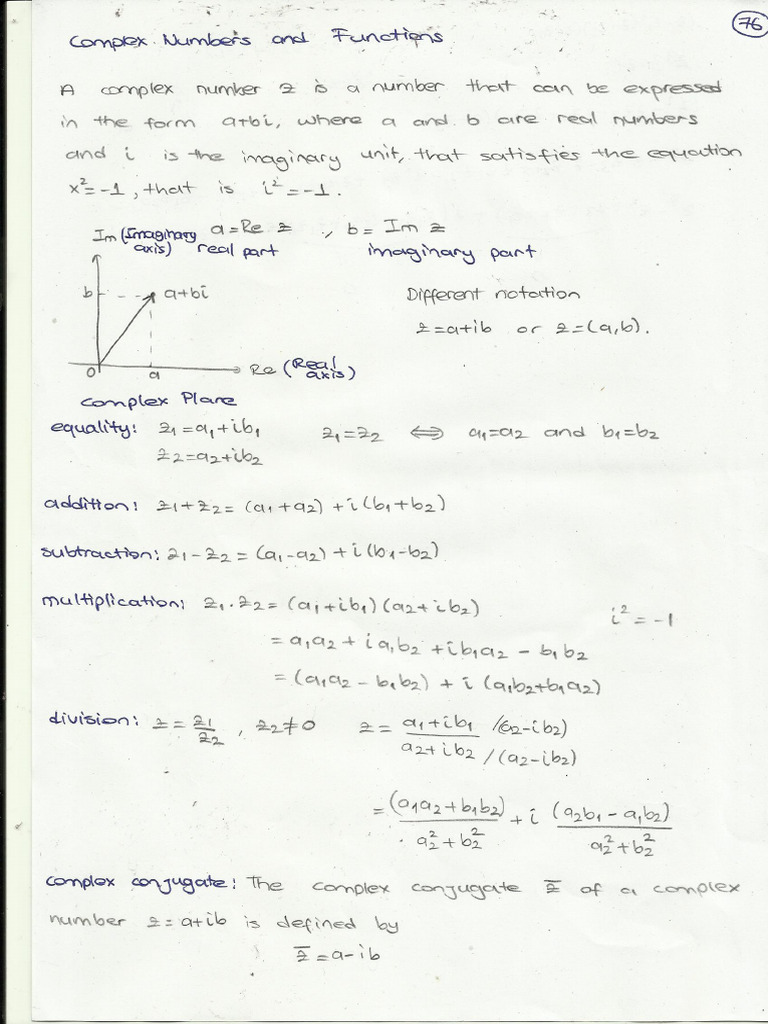 76
Complex Numbers and Functions
A complex number z is a number that can be expressed
in the form a+bi, where a and b are real numbers
and i is the imaginary unit, that satisfies the equation
x²=-1, that is i²=-1.
Im (Imaginary axis) a=Re z , b= Im z
real part imaginary part
b a+bi Different notation
z=a+ib or z=(a,b).
0 a Re (Real axis)
Complex Plane
equality: z₁=a₁+ib₁ z₁=z₂ ⇔ a₁=a₂ and b₁=b₂
z₂=a₂+ib₂
addition: z₁+z₂=(a₁+a₂)+i(b₁+b₂)
subtraction: z₁-z₂=(a₁-a₂)+i(b₁-b₂)
multiplication: z₁.z₂=(a₁+ib₁)(a₂+ib₂) i²=-1
=a₁a₂+ia₁b₂+ib₁a₂-b₁b₂
=(a₁a₂-b₁b₂)+i(a₁b₂+b₁a₂)
division: z=z₁/z₂, z₂≠0 z= a₁+ib₁ /(a₂-ib₂)
a₂+ib₂ /(a₂-ib₂)
=(a₁a₂+b₁b₂)/(a₂²+b₂²) + i (a₂b₁-a₁b₂)/(a₂²+b₂²)
complex conjugate: The complex conjugate z̅ of a complex
number z=a+ib is defined by
z̅=a-ib